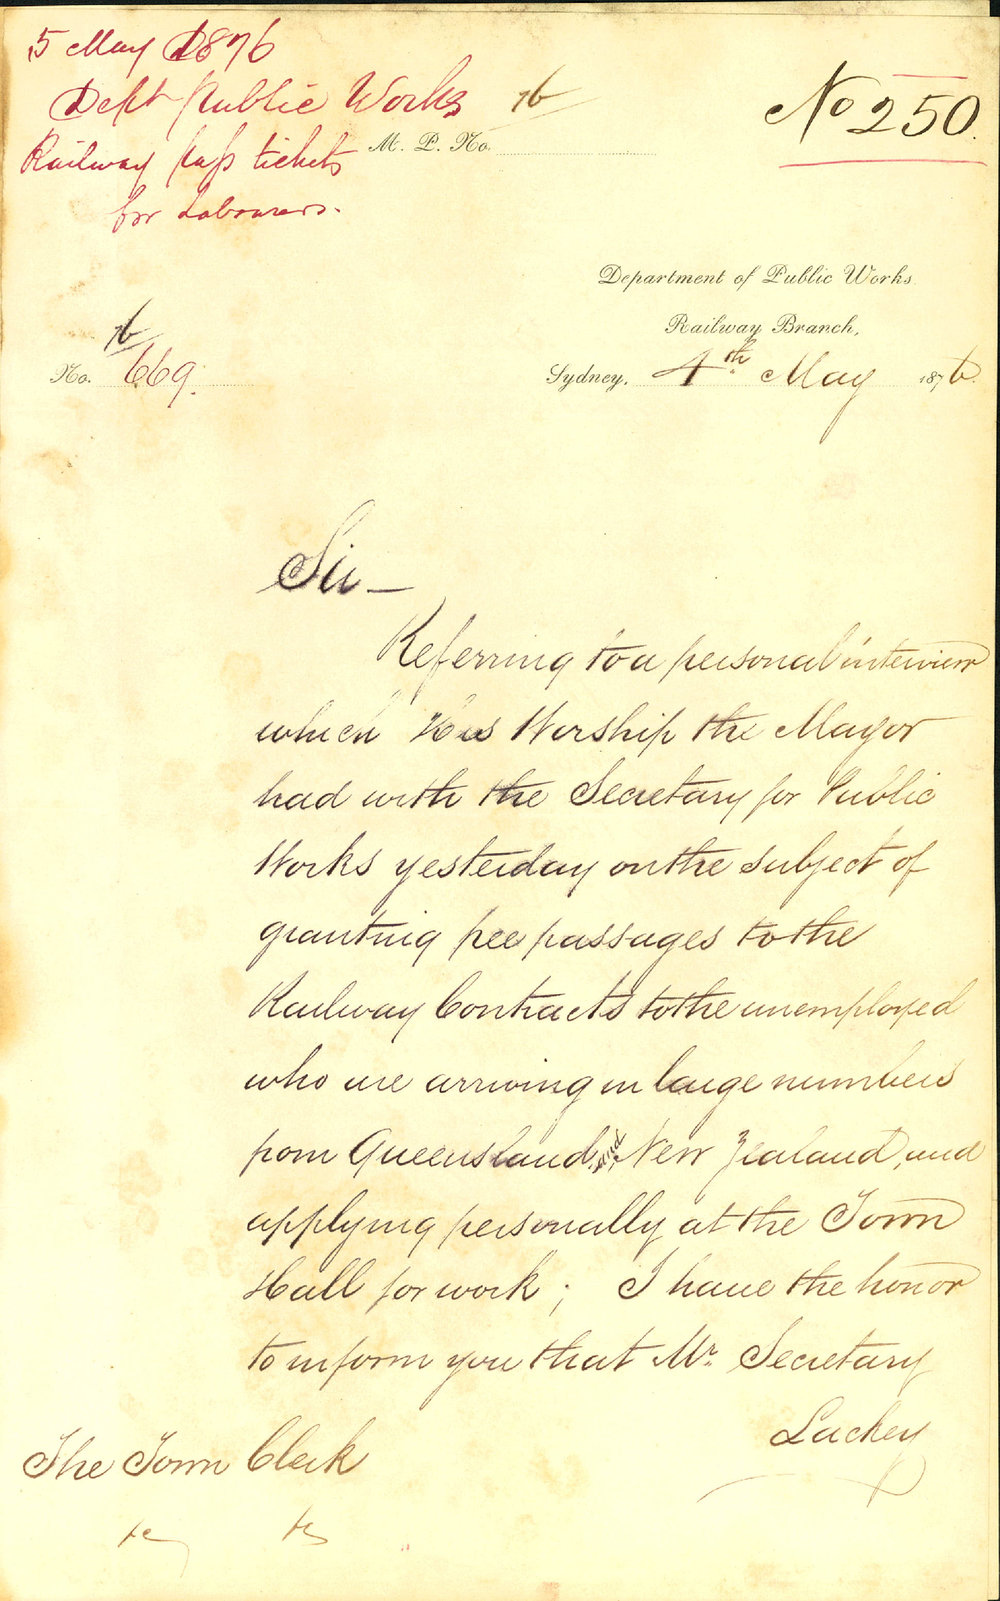 5 May 1876
Dept Public Works
Railway pass tickets
for Labourers.
76
M. P. No.
No 250.
Department of Public Works
Railway Branch,
Sydney, 4th May 1876.
76
No. 669.
Sir –
Referring to a personal interview
which His Worship the Mayor
had with the Secretary for Public
Works yesterday on the subject of
granting free passages to the
Railway Contracts to the unemployed
who are arriving in large numbers
from Queensland, New Zealand, and
applying personally at the Town
Hall for work; I have the honor
to inform you that Mr. Secretary
Lackey
The Town Clerk